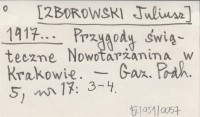 [ZBOROWSKI Juliusz]
1917... Przygody świą-
teczne Nowotarżanina w
Krakowie. — Gaz. Podh.
5, nr 17: 3-4.